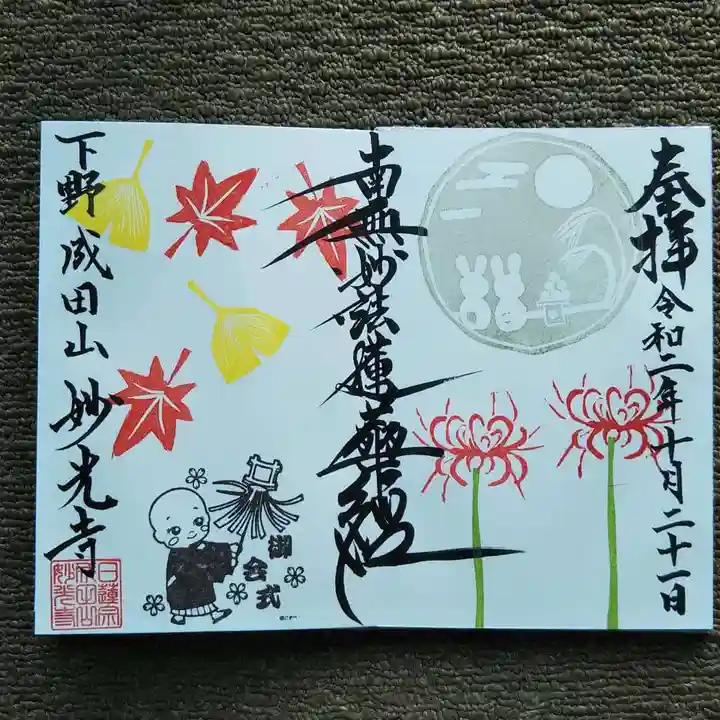 奉拝
令和二年十月二十一日
南無妙法蓮華経
御会式
下野成田山
妙光寺
日蓮宗
妙光寺